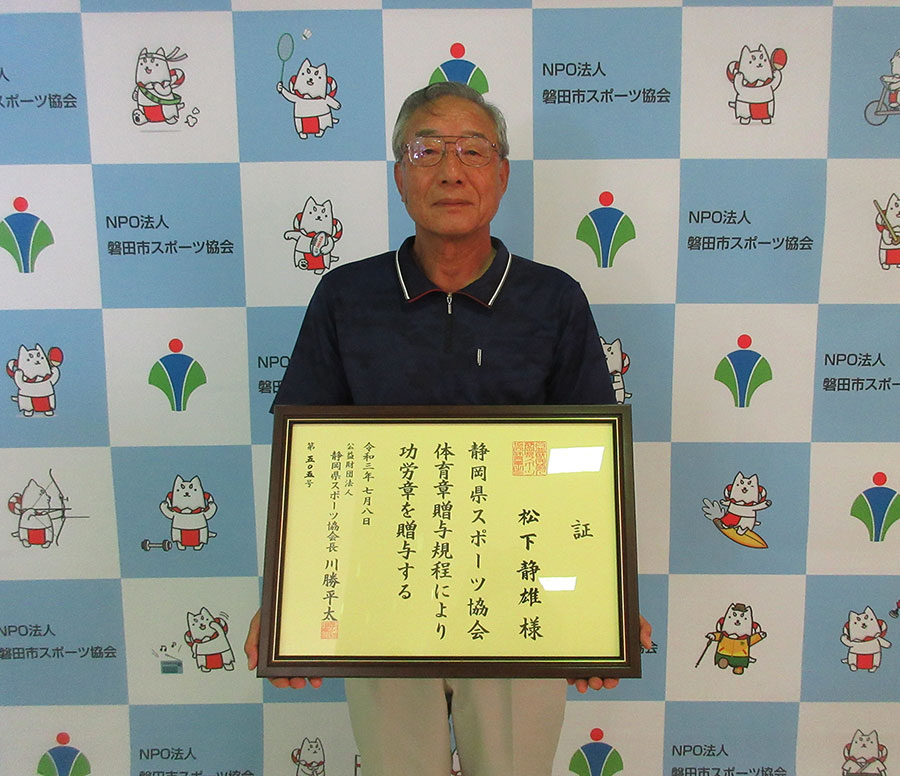 証
松下静雄様
静岡県スポーツ協会
体育章贈与規程により
功労章を贈与する
令和三年七月八日
公益財団法人
静岡県スポーツ協会長 川勝平太
第五〇五号
NPO法人
スポーツ協会
NPO法人
磐田市スポーツ協会
NPO法人
磐田市スポーツ協会
NPO法人
磐田市スポーツ協会
NPO法人
磐田市スポ
NPO法人
磐田市スポーツ協会
NPO法人
磐田市スポーツ協会
スポーツ協会
NPO法人
磐田市スポーツ協会
NPO法人
磐田市スポーツ協会